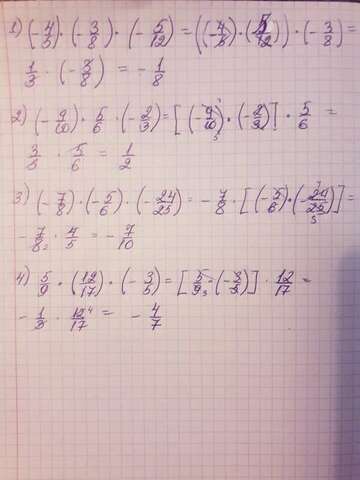 1) (-4/5) · (-3/8) · (-5/12) = ((-4/5) · (5/12)) · (-3/8) =
1/3 · (-3/8) = -1/8
2) (-9/10) · 5/6 · (-2/3) = [(-9/10) · (-2/3)] · 5/6 =
3/5 · 5/6 = 1/2
3) (-7/8) · (-5/6) · (-24/25) = -7/8 · [(-5/6) · (-24/25)] =
-7/8 · 4/5 = -7/10
4) 5/9 · (12/17) · (-3/5) = [5/9 · (-3/5)] · 12/17 =
-1/3 · 12/17 = -4/7